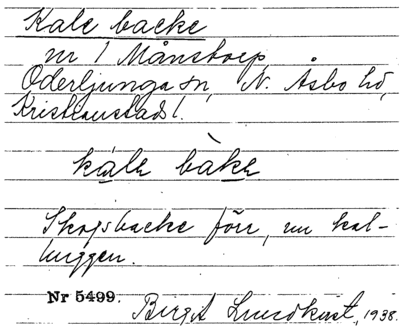 Kale backe
nr 1 Månstorp
Oderljunga sn, N. Åsbo hd,
Kristianstads l.
kале bàke
Skogsbacke förr, nu kal-
huggen.
Nr 5499. Birgit Lundkvist, 1938.